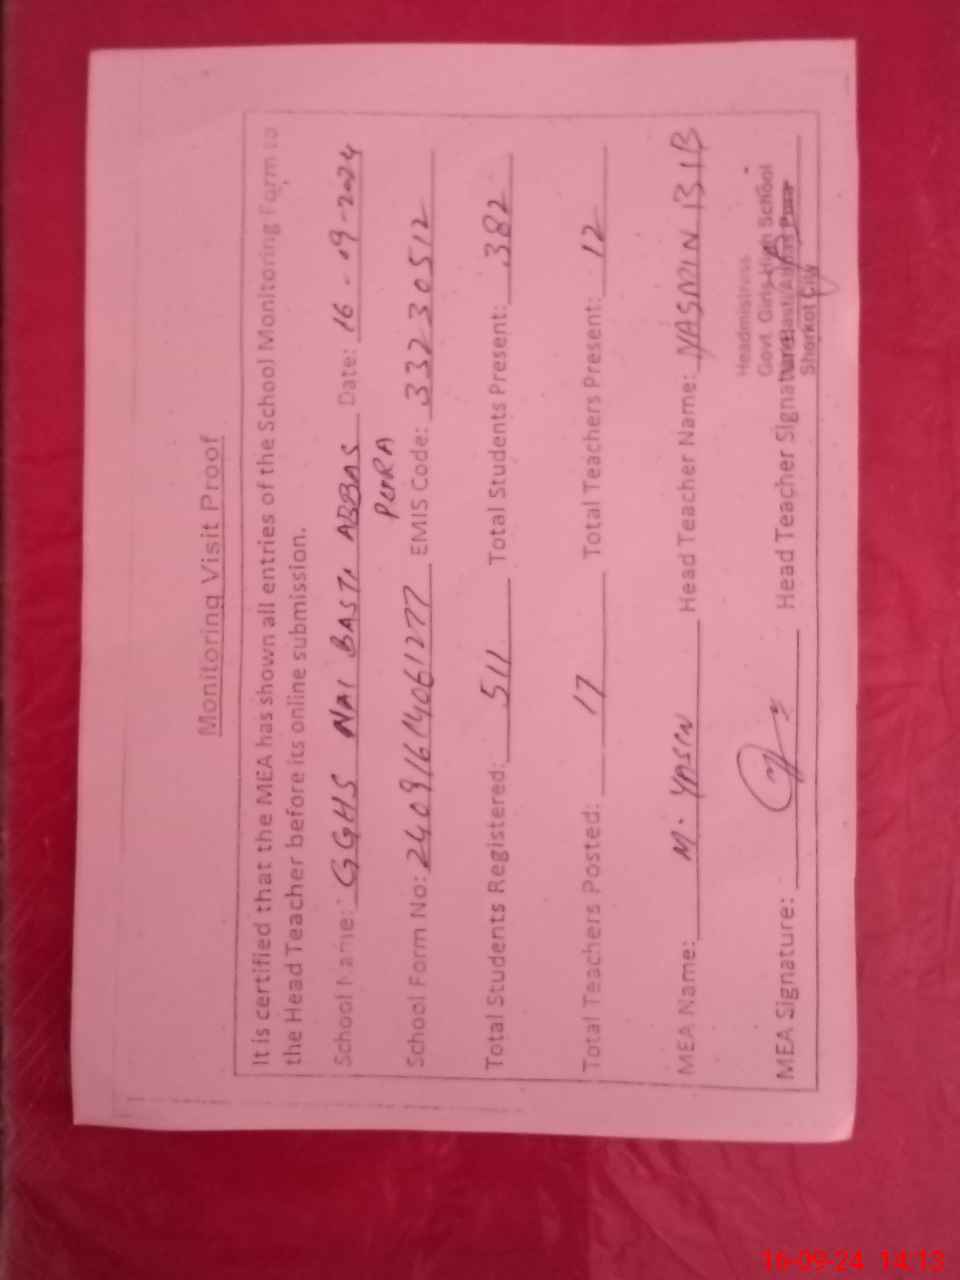 Monitoring Visit Proof
It is certified that the MEA has shown all entries of the School Monitoring Form to
the Head Teacher before its online submission.
School Name: GGHS NAI BASTI ABBAS PURA Date: 16-09-2024
School Form No: 24091614061277 EMIS Code: 33230512
Total Students Registered: 511 Total Students Present: 382
Total Teachers Posted: 17 Total Teachers Present: 12
MEA Name: M. YASEN Head Teacher Name: YASMIN BIB
Headmistress
Govt. Girls High School
Basti Abbas Pura
Shorkot City
MEA Signature: Head Teacher Signature
16-09-24 14:13